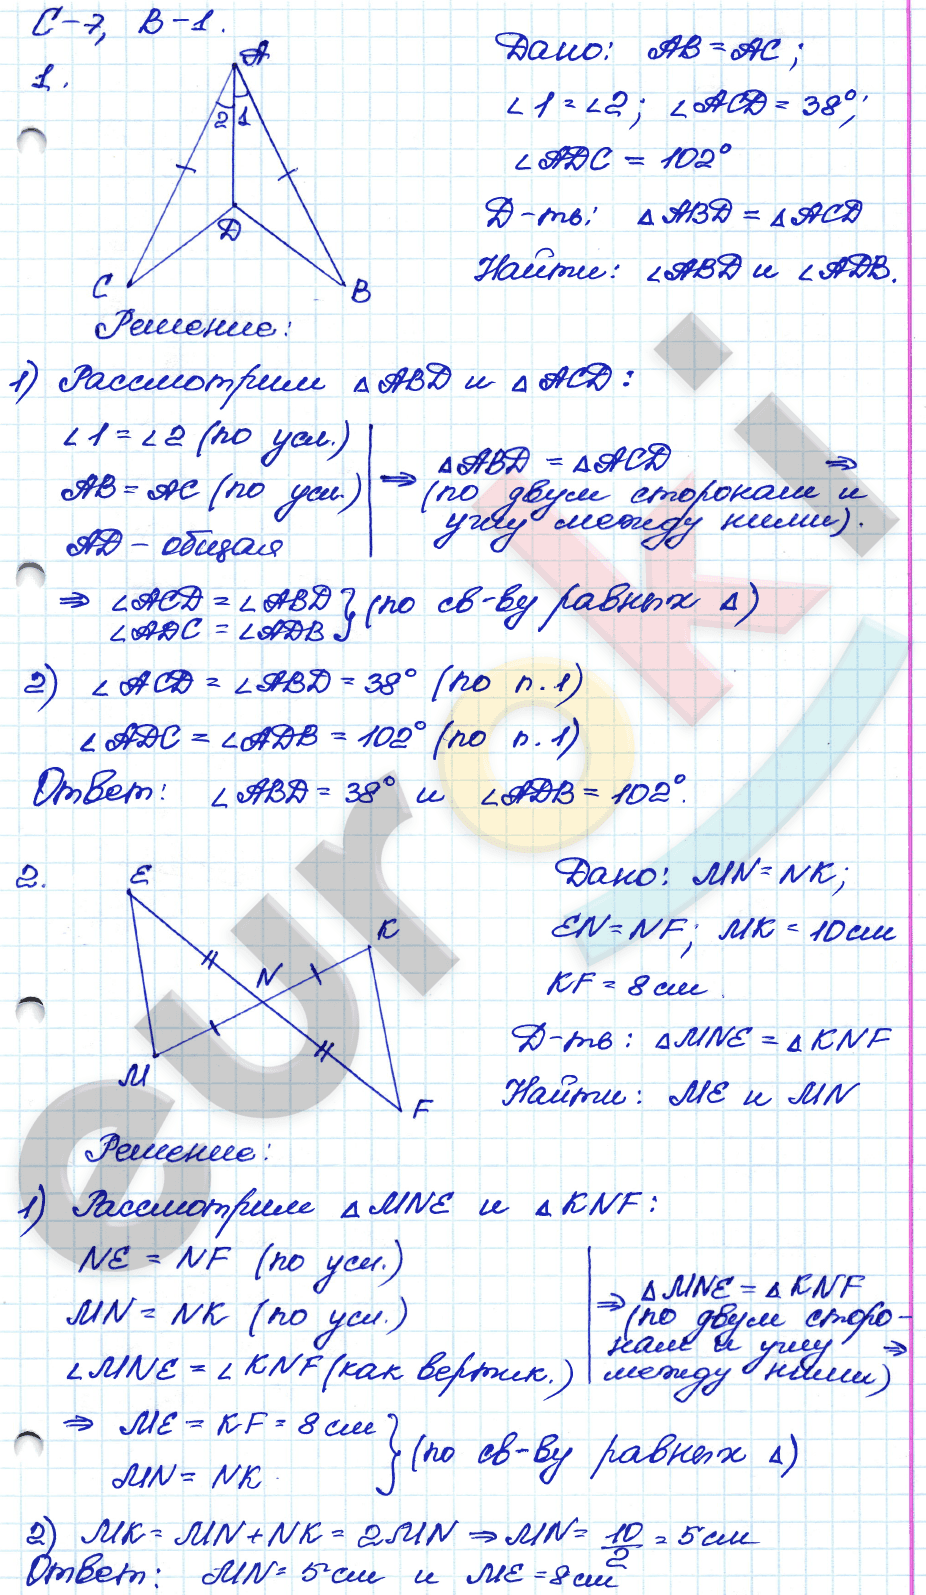 С-7, В-1.
1.
A
2 1
D
C
B
Дано: AB = AC;
∠1 = ∠2; ∠ACD = 38°;
∠ADC = 102°
Д-ть: △ABD = △ACD
Найти: ∠ABD и ∠ADB.
Решение:
1) Рассмотрим △ABD и △ACD:
∠1 = ∠2 (по усл.)
AB = AC (по усл.)
AD - общая
⇒ △ABD = △ACD ⇒
(по двум сторонам и
углу между ними).
⇒ ∠ACD = ∠ABD
∠ADC = ∠ADB } (по св-ву равных △)
2) ∠ACD = ∠ABD = 38° (по п.1)
∠ADC = ∠ADB = 102° (по п.1)
Ответ: ∠ABD = 38° и ∠ADB = 102°.
2.
E
K
N
M
F
Дано: MN = NK;
EN = NF; MK = 10 см
KF = 8 см
Д-ть: △MNE = △KNF
Найти: ME и MN
Решение:
1) Рассмотрим △MNE и △KNF:
NE = NF (по усл.)
MN = NK (по усл.)
∠MNE = ∠KNF (как вертик.)
⇒ △MNE = △KNF
(по двум сторо-
нам и углу ⇒
между ними)
⇒ ME = KF = 8 см
MN = NK } (по св-ву равных △)
2) MK = MN + NK = 2MN ⇒ MN = 10/2 = 5 см
Ответ: MN = 5 см и ME = 8 см
euroki